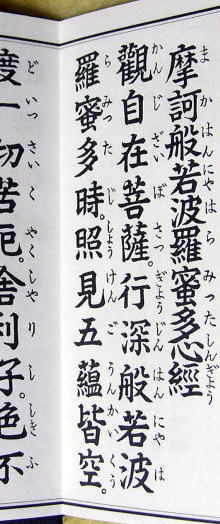 摩訶般若波羅蜜多心經
まかはんにやはらみつたしんぎよう
觀自在菩薩。行深般若波
かんじざいぼさつぎようじんはんにやは
羅蜜多時。照見五蘊皆空。
らみつたじしようけんごうんかいくう
度一切苦厄。舍利子。色不
どいつさいくやくしやりししきふ